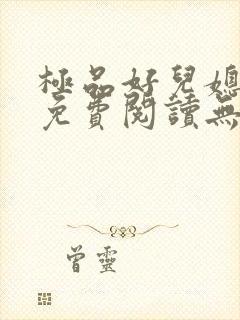 極品好兒媳
免費閱讀無
曾靈